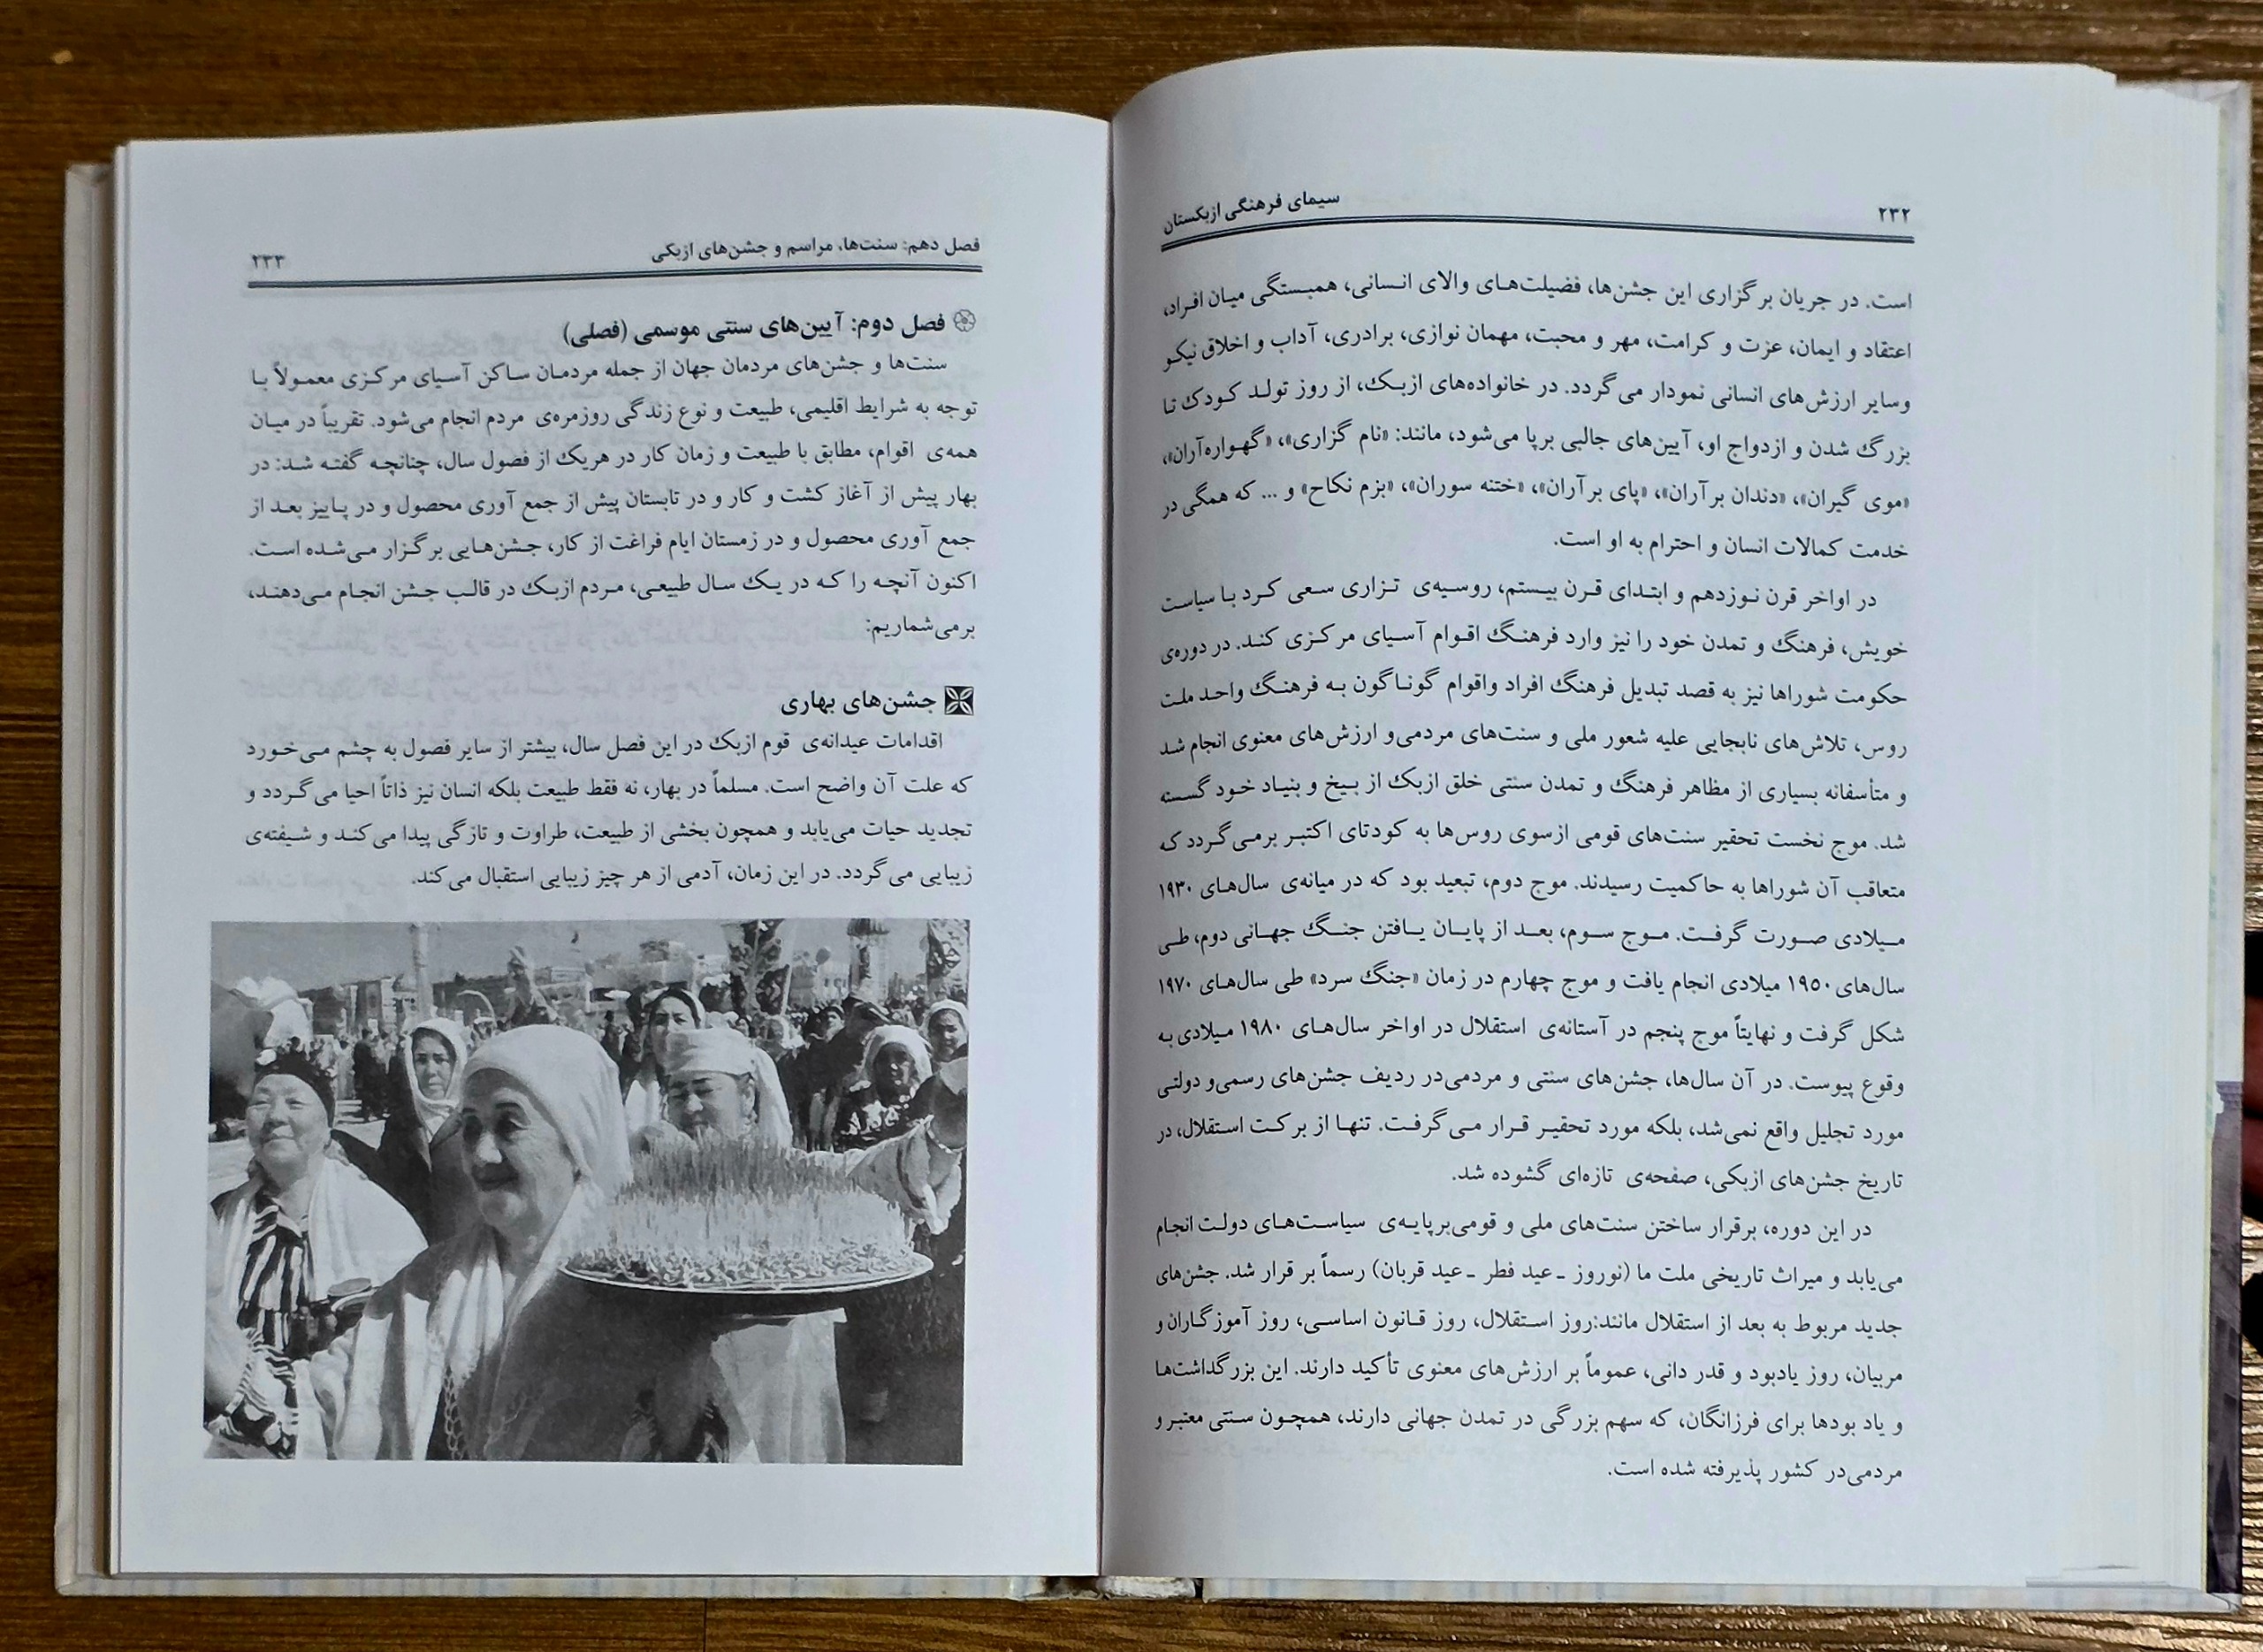 ۲۳۲
سیمای فرهنگی ازبکستان
است. در جریان برگزاری این جشن‌ها، فضیلت‌های والای انسانی، همبستگی میان افراد،
اعتقاد و ایمان، عزت و کرامت، مهر و محبت، مهمان نوازی، برادری، آداب و اخلاق نیکو
وسایر ارزش‌های انسانی نمودار می‌گردد. در خانواده‌های ازبک، از روز تولد کودک تا
بزرگ شدن و ازدواج او، آیین‌های جالبی برپا می‌شود، مانند: «نام گزاری»، «گهواره‌آران»،
«موی گیران»، «دندان برآران»، «پای برآران»، «ختنه سوران»، «بزم نکاح» و ... که همگی در
خدمت کمالات انسان و احترام به او است.
در اواخر قرن نوزدهم و ابتدای قرن بیستم، روسیه‌ی تزاری سعی کرد با سیاست
خویش، فرهنگ و تمدن خود را نیز وارد فرهنگ اقوام آسیای مرکزی کند. در دوره‌ی
حکومت شوراها نیز به قصد تبدیل فرهنگ افراد واقوام گوناگون به فرهنگ واحد ملت
روس، تلاش‌های نابجایی علیه شعور ملی و سنت‌های مردمی‌و ارزش‌های معنوی انجام شد
و متأسفانه بسیاری از مظاهر فرهنگ و تمدن سنتی خلق ازبک از بیخ و بنیاد خود گسسته
شد. موج نخست تحقیر سنت‌های قومی ازسوی روس‌ها به کودتای اکتبر برمی‌گردد که
متعاقب آن شوراها به حاکمیت رسیدند. موج دوم، تبعید بود که در میانه‌ی سال‌های ۱۹۳۰
میلادی صورت گرفت. موج سوم، بعد از پایان یافتن جنگ جهانی دوم، طی
سال‌های ۱۹۵۰ میلادی انجام یافت و موج چهارم در زمان «جنگ سرد» طی سال‌های ۱۹۷۰
شکل گرفت و نهایتاً موج پنجم در آستانه‌ی استقلال در اواخر سال‌های ۱۹۸۰ میلادی به
وقوع پیوست. در آن سال‌ها، جشن‌های سنتی و مردمی‌در ردیف جشن‌های رسمی‌و دولتی
مورد تجلیل واقع نمی‌شد، بلکه مورد تحقیر قرار می‌گرفت. تنها از برکت استقلال، در
تاریخ جشن‌های ازبکی، صفحه‌ی تازه‌ای گشوده شد.
در این دوره، برقرار ساختن سنت‌های ملی و قومی‌برپایه‌ی سیاست‌های دولت انجام
می‌یابد و میراث تاریخی ملت ما (نوروز ـ عید فطر ـ عید قربان) رسماً بر قرار شد. جشن‌های
جدید مربوط به بعد از استقلال مانند:روز استقلال، روز قانون اساسی، روز آموزگاران و
مربیان، روز یادبود و قدر دانی، عموماً بر ارزش‌های معنوی تأکید دارند. این بزرگداشت‌ها
و یاد بودها برای فرزانگان، که سهم بزرگی در تمدن جهانی دارند، همچون سنتی معتبر و
مردمی‌در کشور پذیرفته شده است.
فصل دهم: سنت‌ها، مراسم و جشن‌های ازبکی
۲۳۳
فصل دوم: آیین‌های سنتی موسمی (فصلی)
سنت‌ها و جشن‌های مردمان جهان از جمله مردمان ساکن آسیای مرکزی معمولاً با
توجه به شرایط اقلیمی، طبیعت و نوع زندگی روزمره‌ی مردم انجام می‌شود. تقریباً در میان
همه‌ی اقوام، مطابق با طبیعت و زمان کار در هریک از فصول سال، چنانچه گفته شد: در
بهار پیش از آغاز کشت و کار و در تابستان پیش از جمع آوری محصول و در پاییز بعد از
جمع آوری محصول و در زمستان ایام فراغت از کار، جشن‌هایی برگزار می‌شده است.
اکنون آنچه را که در یک سال طبیعی، مردم ازبک در قالب جشن انجام می‌دهند،
برمی‌شماریم:
جشن‌های بهاری
اقدامات عیدانه‌ی قوم ازبک در این فصل سال، بیشتر از سایر فصول به چشم می‌خورد
که علت آن واضح است. مسلماً در بهار، نه فقط طبیعت بلکه انسان نیز ذاتاً احیا می‌گردد و
تجدید حیات می‌یابد و همچون بخشی از طبیعت، طراوت و تازگی پیدا می‌کند و شیفته‌ی
زیبایی می‌گردد. در این زمان، آدمی از هر چیز زیبایی استقبال می‌کند.